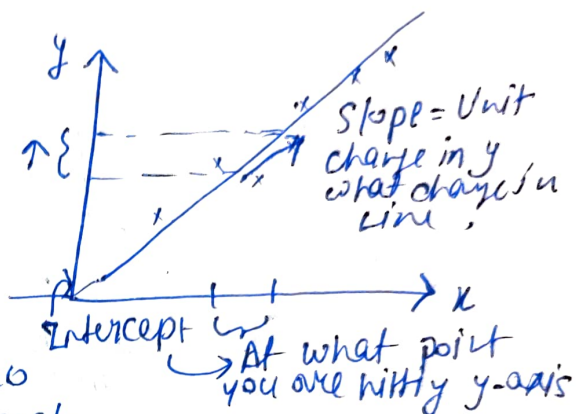 y
Slope = Unit
change in y
what change in
line.
x
Intercept
At what point
you are hitting y-axis